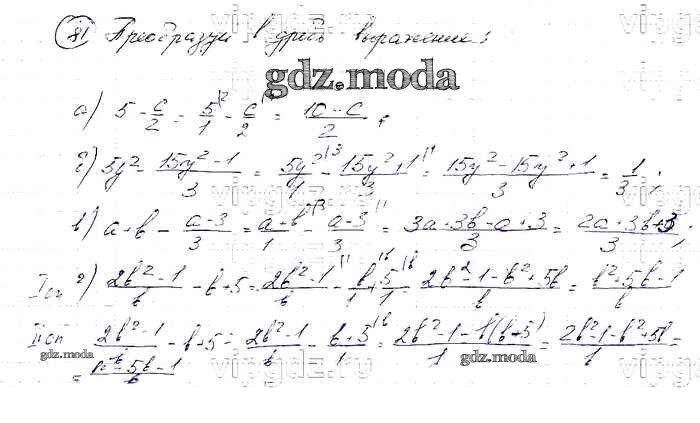 81 Преобразуй в дробь выражение:
gdz.moda
а) 5 - c/2 = 5/1 - c/2 = (10 - c)/2;
5y² - (15y² - 1)/3 = 5y²/1 - (15y² + 1)/3 = (15y² - 15y² + 1)/3 = 1/3;
в) a + b - (a - 3)/3 = (a + b)/1 - (a - 3)/3 = (3a + 3b - a + 3)/3 = (2a + 3b + 3)/3;
I сп г) (2b² - 1)/b - b + 5 = (2b² - 1)/b - b/1 + 5/1 = (2b² - 1 - b² + 5b)/b = (b² + 5b - 1)/b
II сп (2b² - 1)/b - b + 5 = (2b² - 1)/b - (b + 5)/1 = (2b² - 1 - b(b + 5))/1 = (2b² - 1 - b² + 5b)/b =
gdz.moda gdz.moda
= - 5b - 1/b